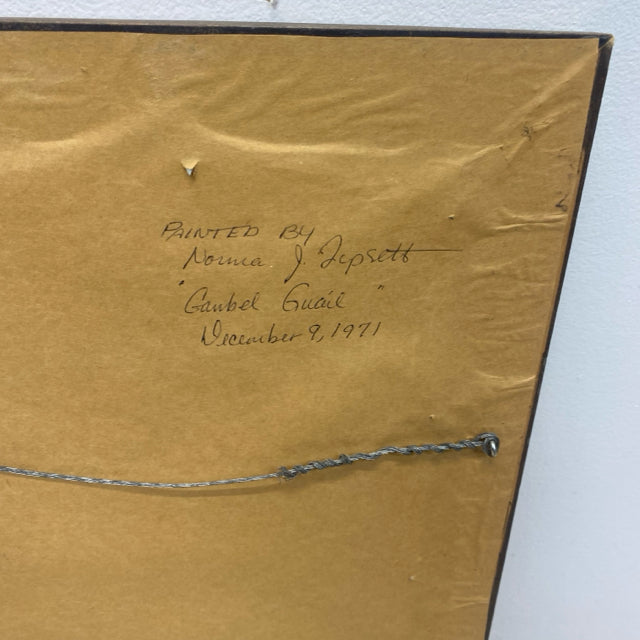 PAINTED BY
Norma J. Tipsett
"Gambel Quail"
December 9, 1971